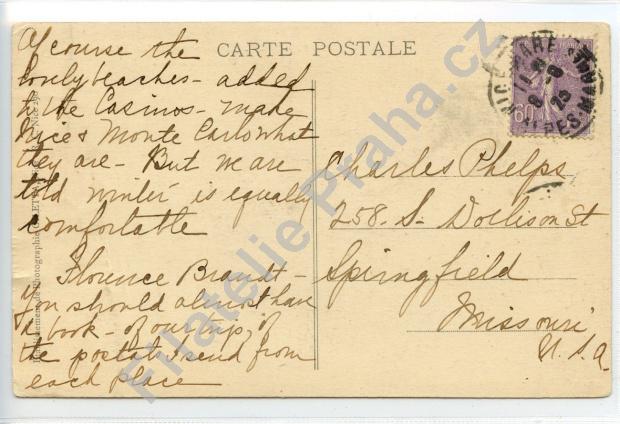 CARTE POSTALE
Of course the
lovely beaches - added
to the Casinos - make
Nice & Monte Carlo what
they are - But we are
told winter is equally
comfortable
Florence Brandt -
You should almost have
a book - of our trip, of
the postals I send from
each place
Charles Phelps
258 S. Dollison St
Springfield
Missouri
U. S. A
60
NICE GARE
25
Filatelie Praha.cz